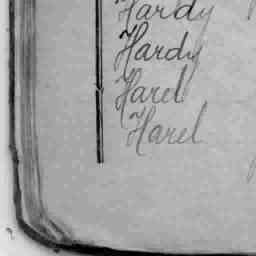 Hardy
Hardy
Harel
Harel